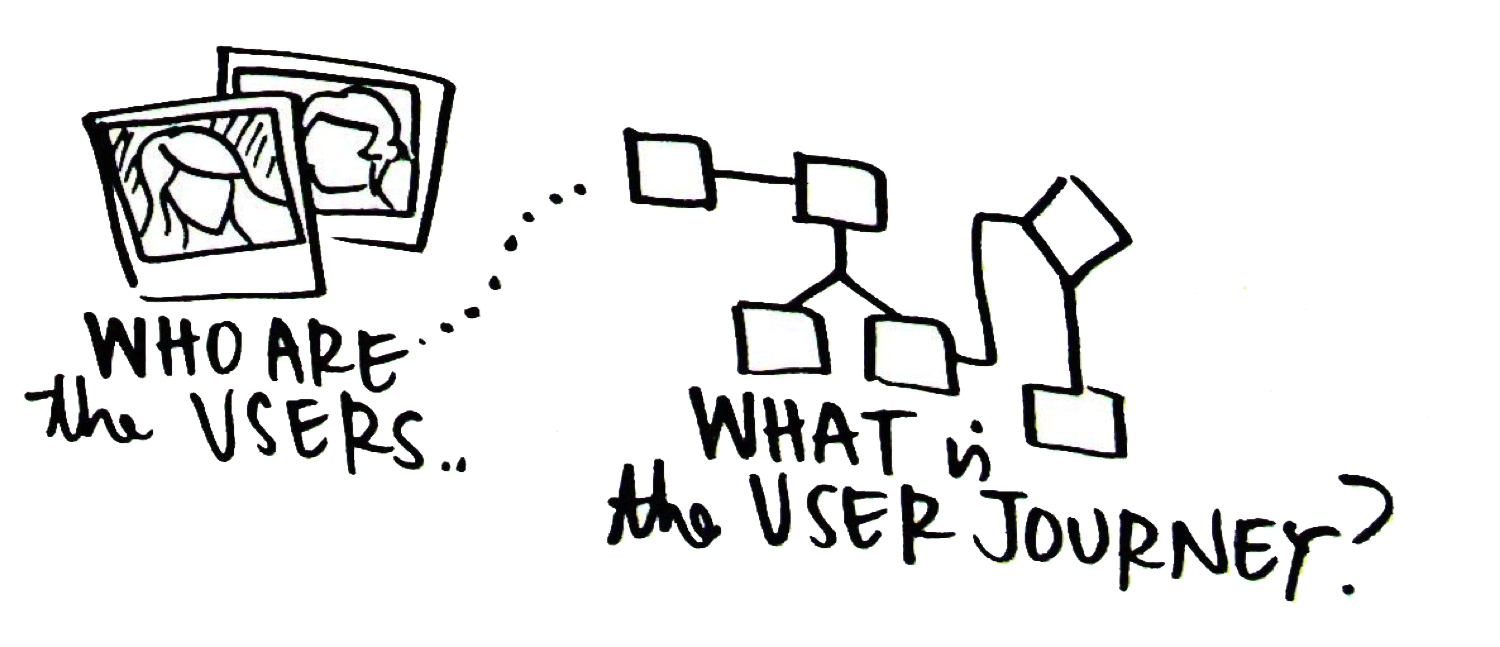 WHO ARE
the USERS..
WHAT is
the USER JOURNEY?